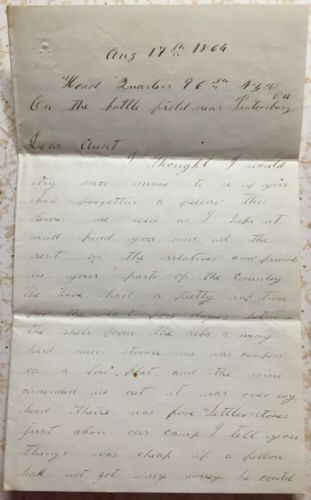 Aug 17th 1864
Head Quarters 96th N.Y.V
On the battle field near Petersburg Va
Dear Aunt
I thought I would
try once more to see if you
had forgotten a fellow this
leave me well as I hope it
will find you and all the
rest of the relatives and friends
in your parts of the Country
We have had a pretty ruf time
for the last few days between
the shels from the rebs a nomy
hard rain storme we was camped
on a low flat and the raine
drownded us out it was over my
head there was five Settler stores
just above our camp I tell you
things was cheap if a fellow
had not got any money he could